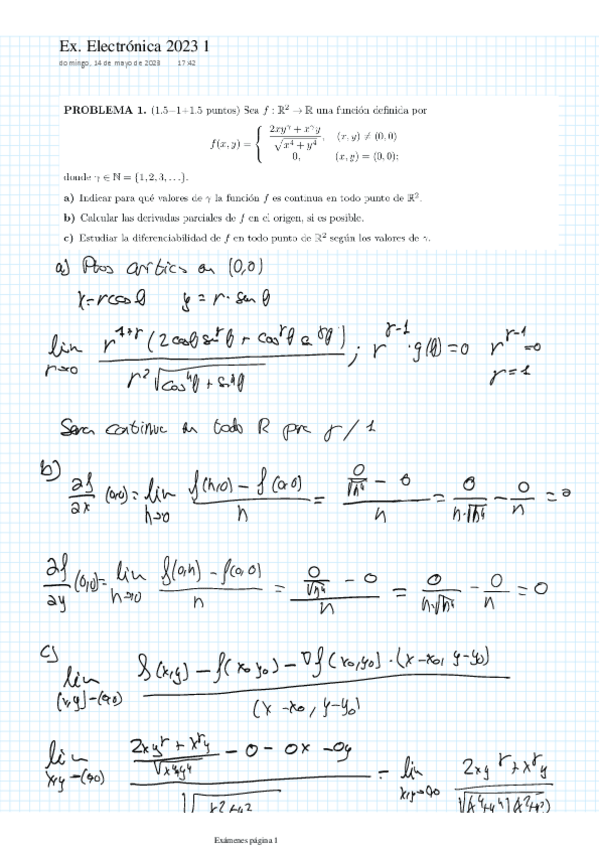 Ex. Electrónica 2023 1
domingo, 14 de mayo de 2023 17:42
PROBLEMA 1. (1.5−1+1.5 puntos) Sea f : ℝ² → ℝ una función definida por
f(x, y) = { (2xy^γ + x^γ y)/√(x⁴ + y⁴), (x, y) ≠ (0, 0)
0, (x, y) = (0, 0);
donde γ ∈ ℕ = {1, 2, 3, …}.
a) Indicar para qué valores de γ la función f es continua en todo punto de ℝ².
b) Calcular las derivadas parciales de f en el origen, si es posible.
c) Estudiar la diferenciabilidad de f en todo punto de ℝ² según los valores de γ.
a) Ptos en (0,0)
x=rcosθ y = r·senθ
lim r→0 r^(1+r) (2cosθ sen^r θ + cos^r θ senθ) / r² √(cos⁴θ + sen⁴θ) ; r^(r-1) · g(θ) = 0 r^(r-1) = 0
r = 1
Sera continua en todo R r / 1
b) ∂f/∂x (0,0) = lim h→0 (f(h,0) − f(0,0))/h = (0/√h⁴ − 0)/h = 0/(h·√h⁴) − 0/h = 0
∂f/∂y (0,0) = lim h→0 (f(0,h) − f(0,0))/h = (0/√h⁴ − 0)/h = 0/(h·√h⁴) − 0/h = 0
c) lim (x,y)→(0,0) (f(x,y) − f(x₀ y₀) − ∇f(x₀,y₀) · (x−x₀, y−y₀)) / (x−x₀, y−y₀)
lim x,y→(0,0) ((2xy^r + x^r y)/√(x⁴+y⁴) − 0 − 0x − 0y) / √(x²+y²) = lim x,y→0,0 (2xy^r + x^r y) / √((x⁴+y⁴)(x²+y²))
Exámenes página 1